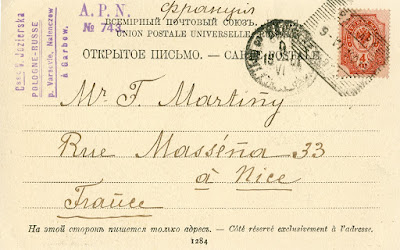 Франція
A. P. N.
№ 743
ВСЕМІРНЫЙ ПОЧТОВЫЙ СОЮЗЪ.
UNION POSTALE UNIVERSELLE.
ОТКРЫТОЕ ПИСЬМО. — CARTE POSTALE.
POLOGNE-RUSSE
p. Varsovie, Nalenczow
à Garbow.
Mr F. Martiny
Rue Masséna 33
à Nice
France
На этой сторонѣ пишется только адресъ. — Côté réservé exclusivement à l'adresse.
1284